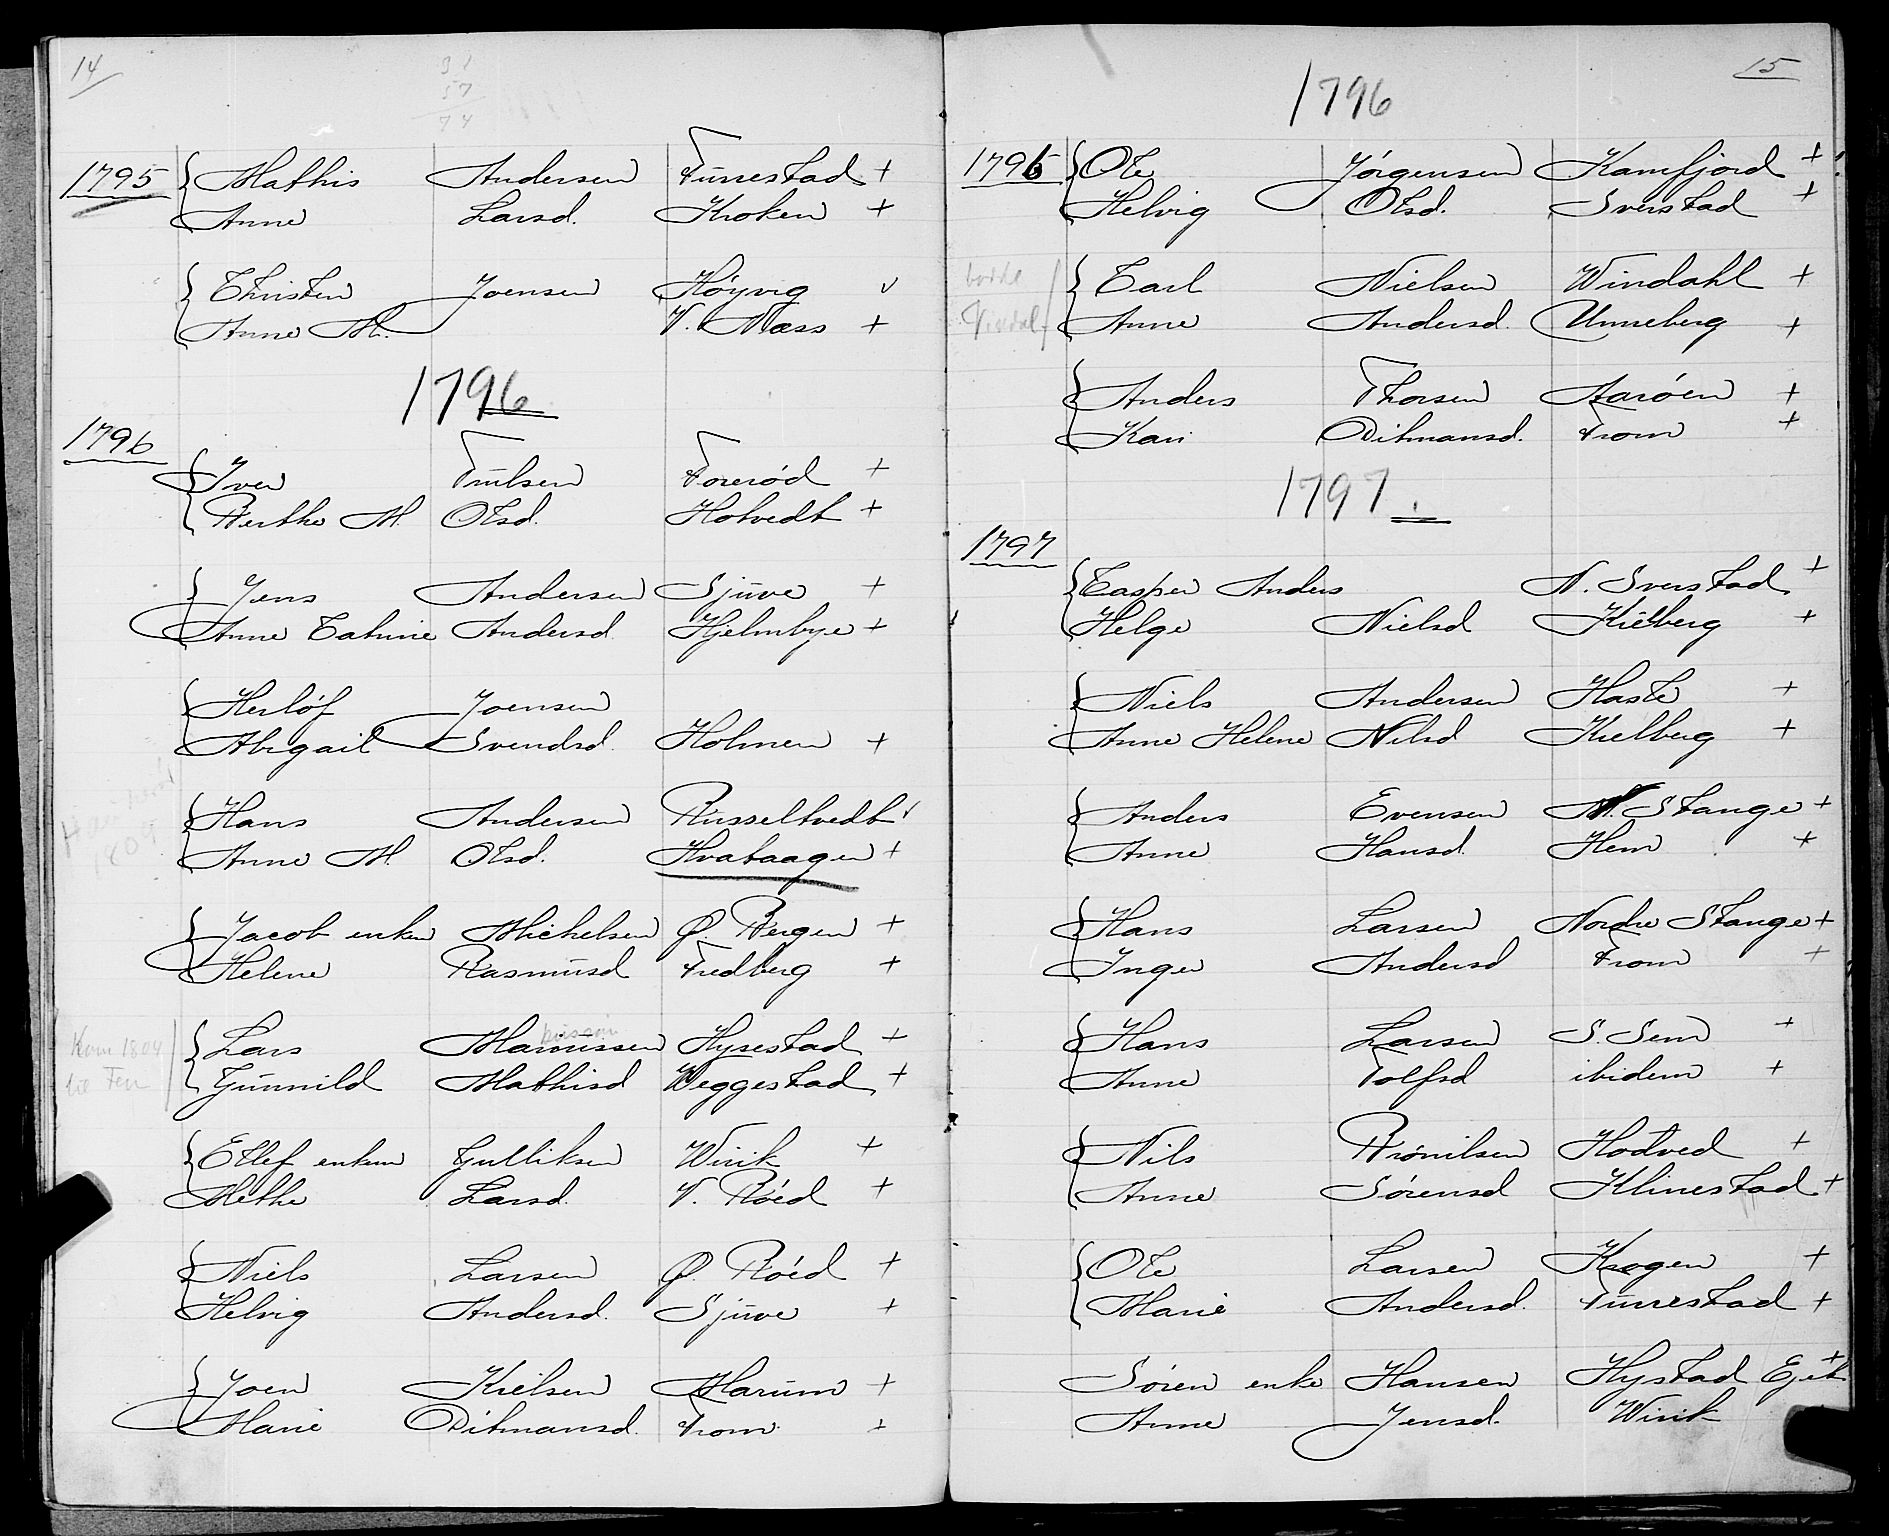 14
91
57
74
1795 Mathis Andersen Furrestad +
Anne Larsd. Kroken +
Christen Joensen Höyvig v
Anne M. V. Næss +
1796
1796
Iver Trulsen Foreröd +
Berthe M. Olsd. Hotvedt +
Jens Andersen Sjüve +
Anne Catrine Andersd. Hjelmbye +
Herlöf Joensen
Abigail Svendsd. Holmen +
Hans Andersen Russeltvedt v
Anne M. Olsd. Hvataagen +
1809
Jacob enkem Michelsen Ø. Bergen +
Helene Rasmüsd Fredberg +
Kom 1804 Lars Hysestad +
til Fen Günnild Mathisd Weggestad +
Ellef enkem Gulliksen Wirik +
Methe Larsd. V. Röed +
Niels Larsen Ø. Röed +
Helvig Andersd. Sjüve +
Joen Kielsen Marum +
Marie Ditmansd. From +
15
1796
1796 Ole Jörgensen Kamfjord +
Helvig Olsd. Sverstad +
Carl Nielsen Windahl +
Anne Andersd. Unneberg +
Anders Thorsen Aaröen +
Kari Ditmansd. From +
1797.
1797
Casper Anders N. Sverstad +
Helge Nielsd Kielberg +
Niels Andersen Haste +
Anne Helene Nilsd Kielberg +
Anders Evensen N. Stange +
Anne Hansd. Hem +
Hans Larsen Nordre Stange +
Inger Andersd From +
Hans Larsen S. Sem +
Anne Tolfsd ibidem +
Nils Brönilsen Hodtved +
Anne Sörensd Klinestad +
Ole Larsen Krogen +
Marie Andersd. Furrestad +
Sören enke Hansen Hystad Ejek +
Anne Jensd. Wirik